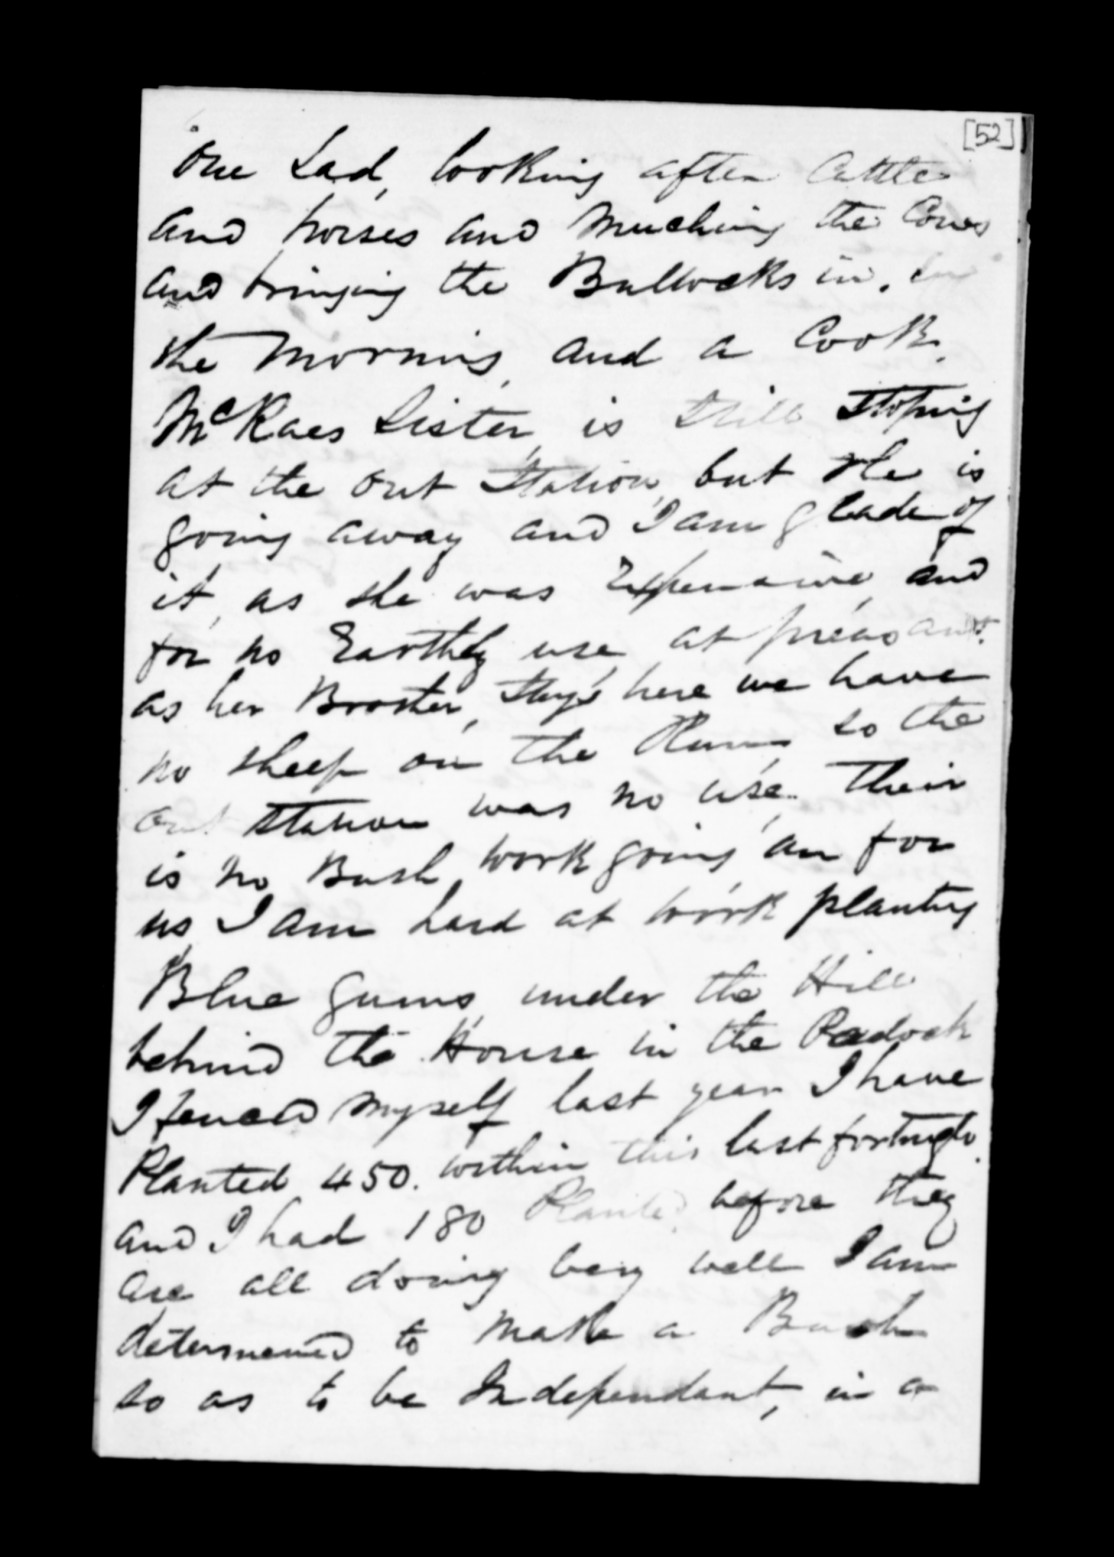 [52]
one Lad, looking after Cattle
and horses and Muching the Cows
and bringing the Bullocks in. in
the Morning, and a Cook.
McRaes Sister, is still Stoping
at the out Station, but she is
going away and I am glade of
it, as she was Expensive, and
for no Earthly use, at preasant.
as her Broster, Stays here we have
no sheep on the Run, so the
out Station was no use, their
is no Bush work going an for
us, I am hard at work planting
Blue gums, under the Hill
behind the House in the Padock
I fenced Myself last year I have
Planted 450. within this last fortnight.
and I had 180 Planted before they
are all doing very well I am
determened to Make a Bush
so as to be Independant, in a